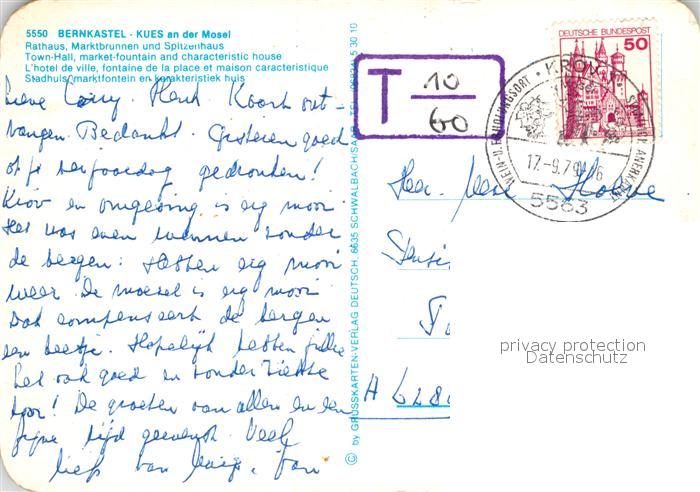 5550 BERNKASTEL - KUES an der Mosel
Rathaus, Marktbrunnen und Spitzenhaus
Town-Hall, market-fountain and characteristic house
L'hotel de ville, fontaine de la place et maison caracteristique
Stadhuis, marktfontein en karakteristiek huis
Lieve Henk. Kaart ont-
vangen. Bedankt. Gisteren goed
op je verjaardag gedronken!
Kröv en omgeving is erg mooi
Het was even wennen zonder
de bergen. Hebben erg mooi
weer. De moesel is erg mooi
Dat compenseert de bergen
een beetje. Hopelijk hebben jullie
het ook goed en zonder ziekte
door! De groeten van allen en een
fijne tijd gewenst. Veel
liefs van
© by GROSSKARTEN-VERLAG DEUTSCH, 6635 SCHWALBACH/SAAR
T 10
60
DEUTSCHE BUNDESPOST
50
KRÖV
WEIN-U. ERHOLUNGSORT
STAATLICH ANERKANNT
17.-9.79
5563
A 628
privacy protection
Datenschutz